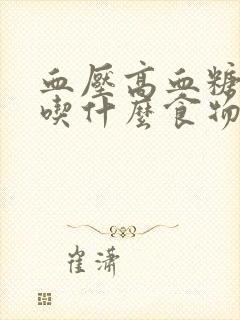 血壓高血糖
喫什麼食物
崔潇